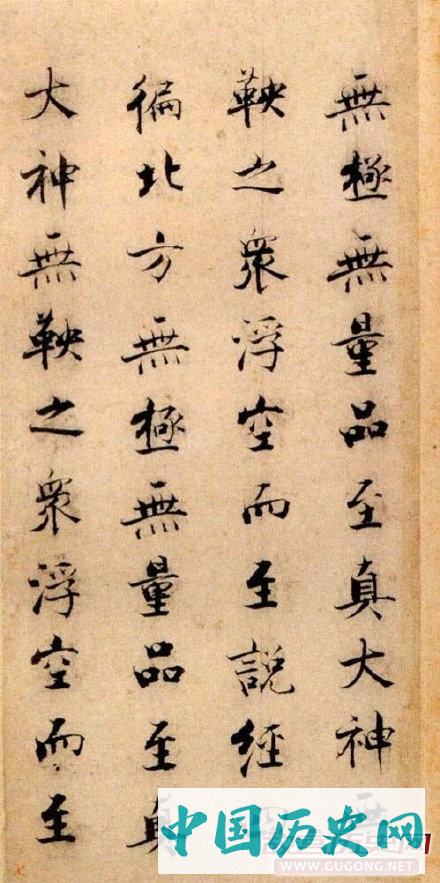 無極無量品至真大神
鞅之衆浮空而至說經
徧北方無極無量品至真
大神無鞅之衆浮空而至
中国历史网
WWW.GUGONG.NET